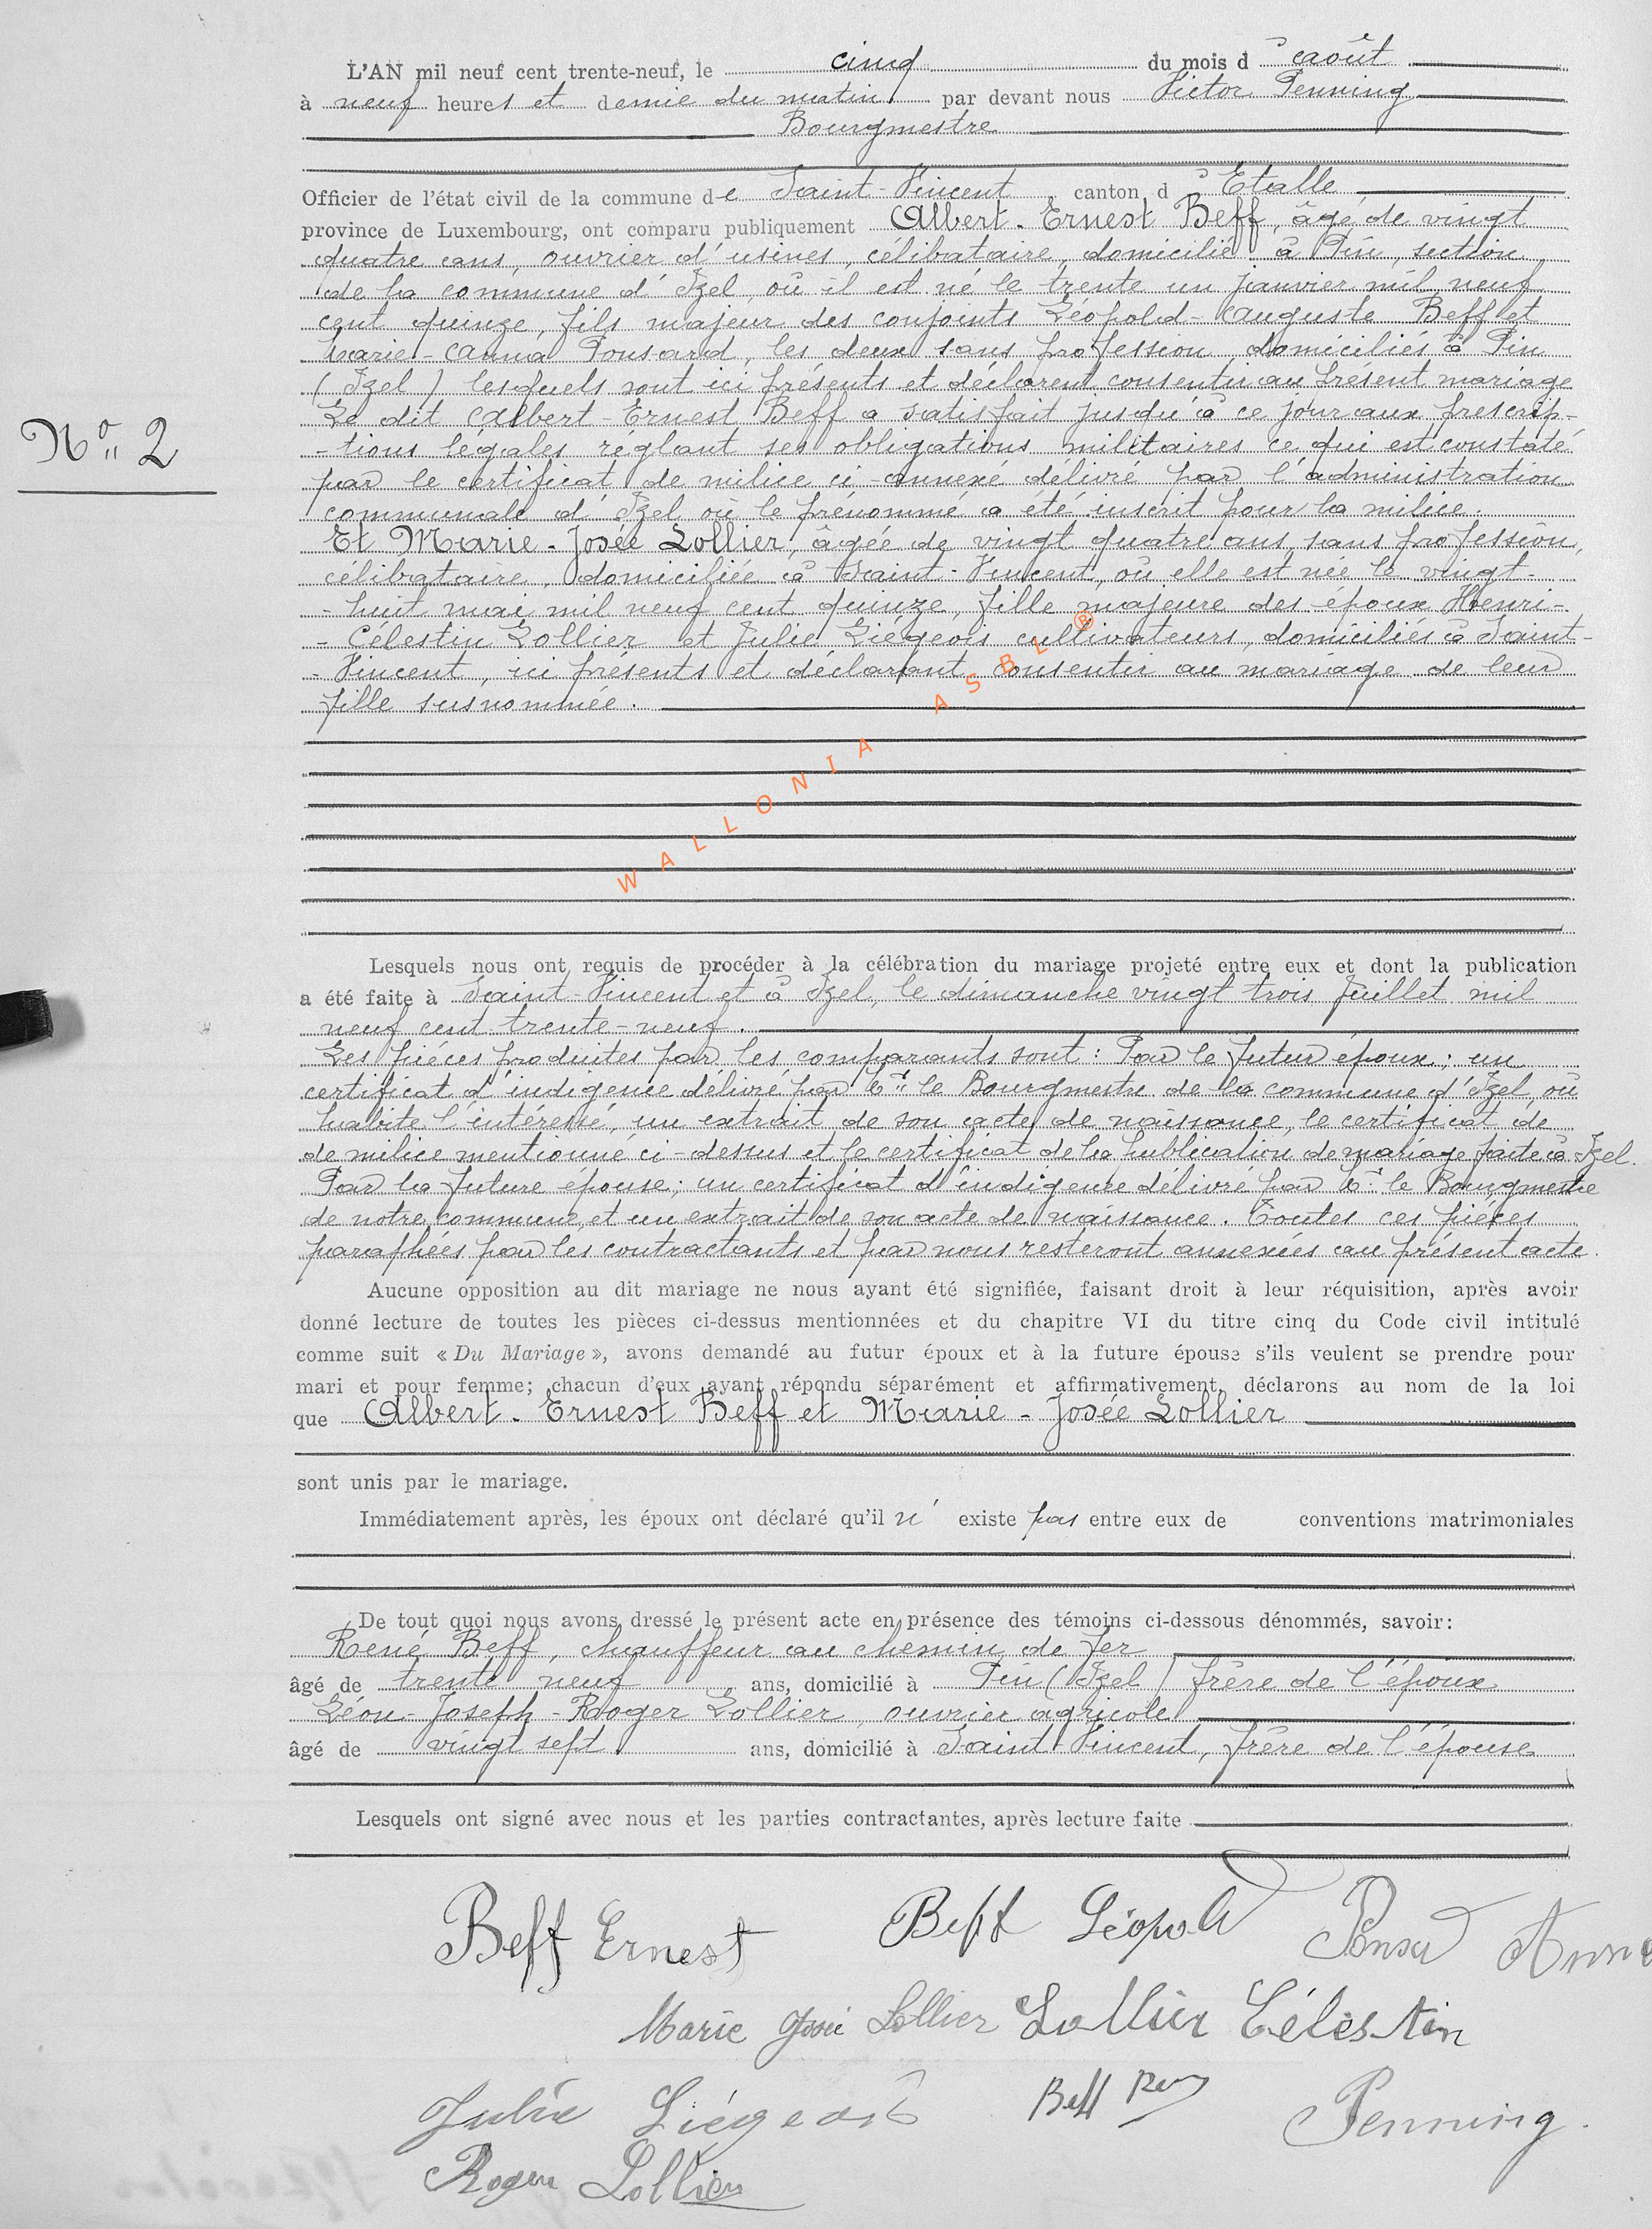 L'AN mil neuf cent trente-neuf, le cinq du mois d'août
à neuf heures et demie du matin par devant nous Victor Penning
Bourgmestre
Officier de l'état civil de la commune de Saint-Vincent, canton d'Etalle
province de Luxembourg, ont comparu publiquement Albert-Ernest Beff, âgé de vingt
quatre ans, ouvrier d'usines, célibataire, domicilié à Pin, section
de la commune d'Izel, où il est né le trente un janvier mil neuf
cent quinze, fils majeur des conjoints Léopold-Auguste Beff et
Marie-Anna Ponsard, les deux sans profession, domiciliés à Pin
(Izel) lesquels sont ici présents et déclarent consentir au présent mariage
Le dit Albert-Ernest Beff a satisfait jusqu'à ce jour aux prescrip-
-tions légales réglant ses obligations militaires ce qui est constaté
par le certificat de milice ci-annexé délivré par l'administration
communale d'Izel où le prénommé a été inscrit pour la milice.
Et Marie-Josée Lollier, âgée de vingt quatre ans, sans profession,
célibataire, domiciliée à Saint-Vincent, où elle est née le vingt-
-huit mai mil neuf cent quinze, fille majeure des époux Henri-
-Célestin Lollier et Julie Liégeois cultivateurs, domiciliés à Saint-
-Vincent, ici présents et déclarant consentir au mariage de leur
fille susnommée.
WALLONIA ASBL ®
Nº 2
Lesquels nous ont requis de procéder à la célébration du mariage projeté entre eux et dont la publication
a été faite à Saint-Vincent et à Izel, le dimanche vingt trois juillet mil
neuf cent trente-neuf.
Les pièces produites par les comparants sont : Par le futur époux; un
certificat d'indigence délivré par le Bourgmestre de la commune d'Izel, où
habite l'intéressé, un extrait de son acte de naissance, le certificat de
de milice mentionné ci-dessus et le certificat de la publication de mariage faite à Izel.
Par la future épouse; un certificat d'indigence délivré par le Bourgmestre
de notre commune, et un extrait de son acte de naissance. Toutes ces pièces
paraphées par les contractants et par nous resteront annexées au présent acte.
Aucune opposition au dit mariage ne nous ayant été signifiée, faisant droit à leur réquisition, après avoir
donné lecture de toutes les pièces ci-dessus mentionnées et du chapitre VI du titre cinq du Code civil intitulé
comme suit « Du Mariage », avons demandé au futur époux et à la future épouse s'ils veulent se prendre pour
mari et pour femme; chacun d'eux ayant répondu séparément et affirmativement, déclarons au nom de la loi
que Albert-Ernest Beff et Marie-Josée Lollier
sont unis par le mariage.
Immédiatement après, les époux ont déclaré qu'il n'existe pas entre eux de conventions matrimoniales
De tout quoi nous avons dressé le présent acte en présence des témoins ci-dessous dénommés, savoir :
René Beff, chauffeur au chemin de fer
âgé de trente neuf ans, domicilié à Pin (Izel) frère de l'époux
Léon-Joseph-Roger Lollier, ouvrier agricole
âgé de vingt sept ans, domicilié à Saint-Vincent, frère de l'épouse
Lesquels ont signé avec nous et les parties contractantes, après lecture faite
Beff Ernest Beff Léopold Anna
Marie Josée Lollier Lollier Célestin
Julie Liégeois Beff Penning
Roger Lollier